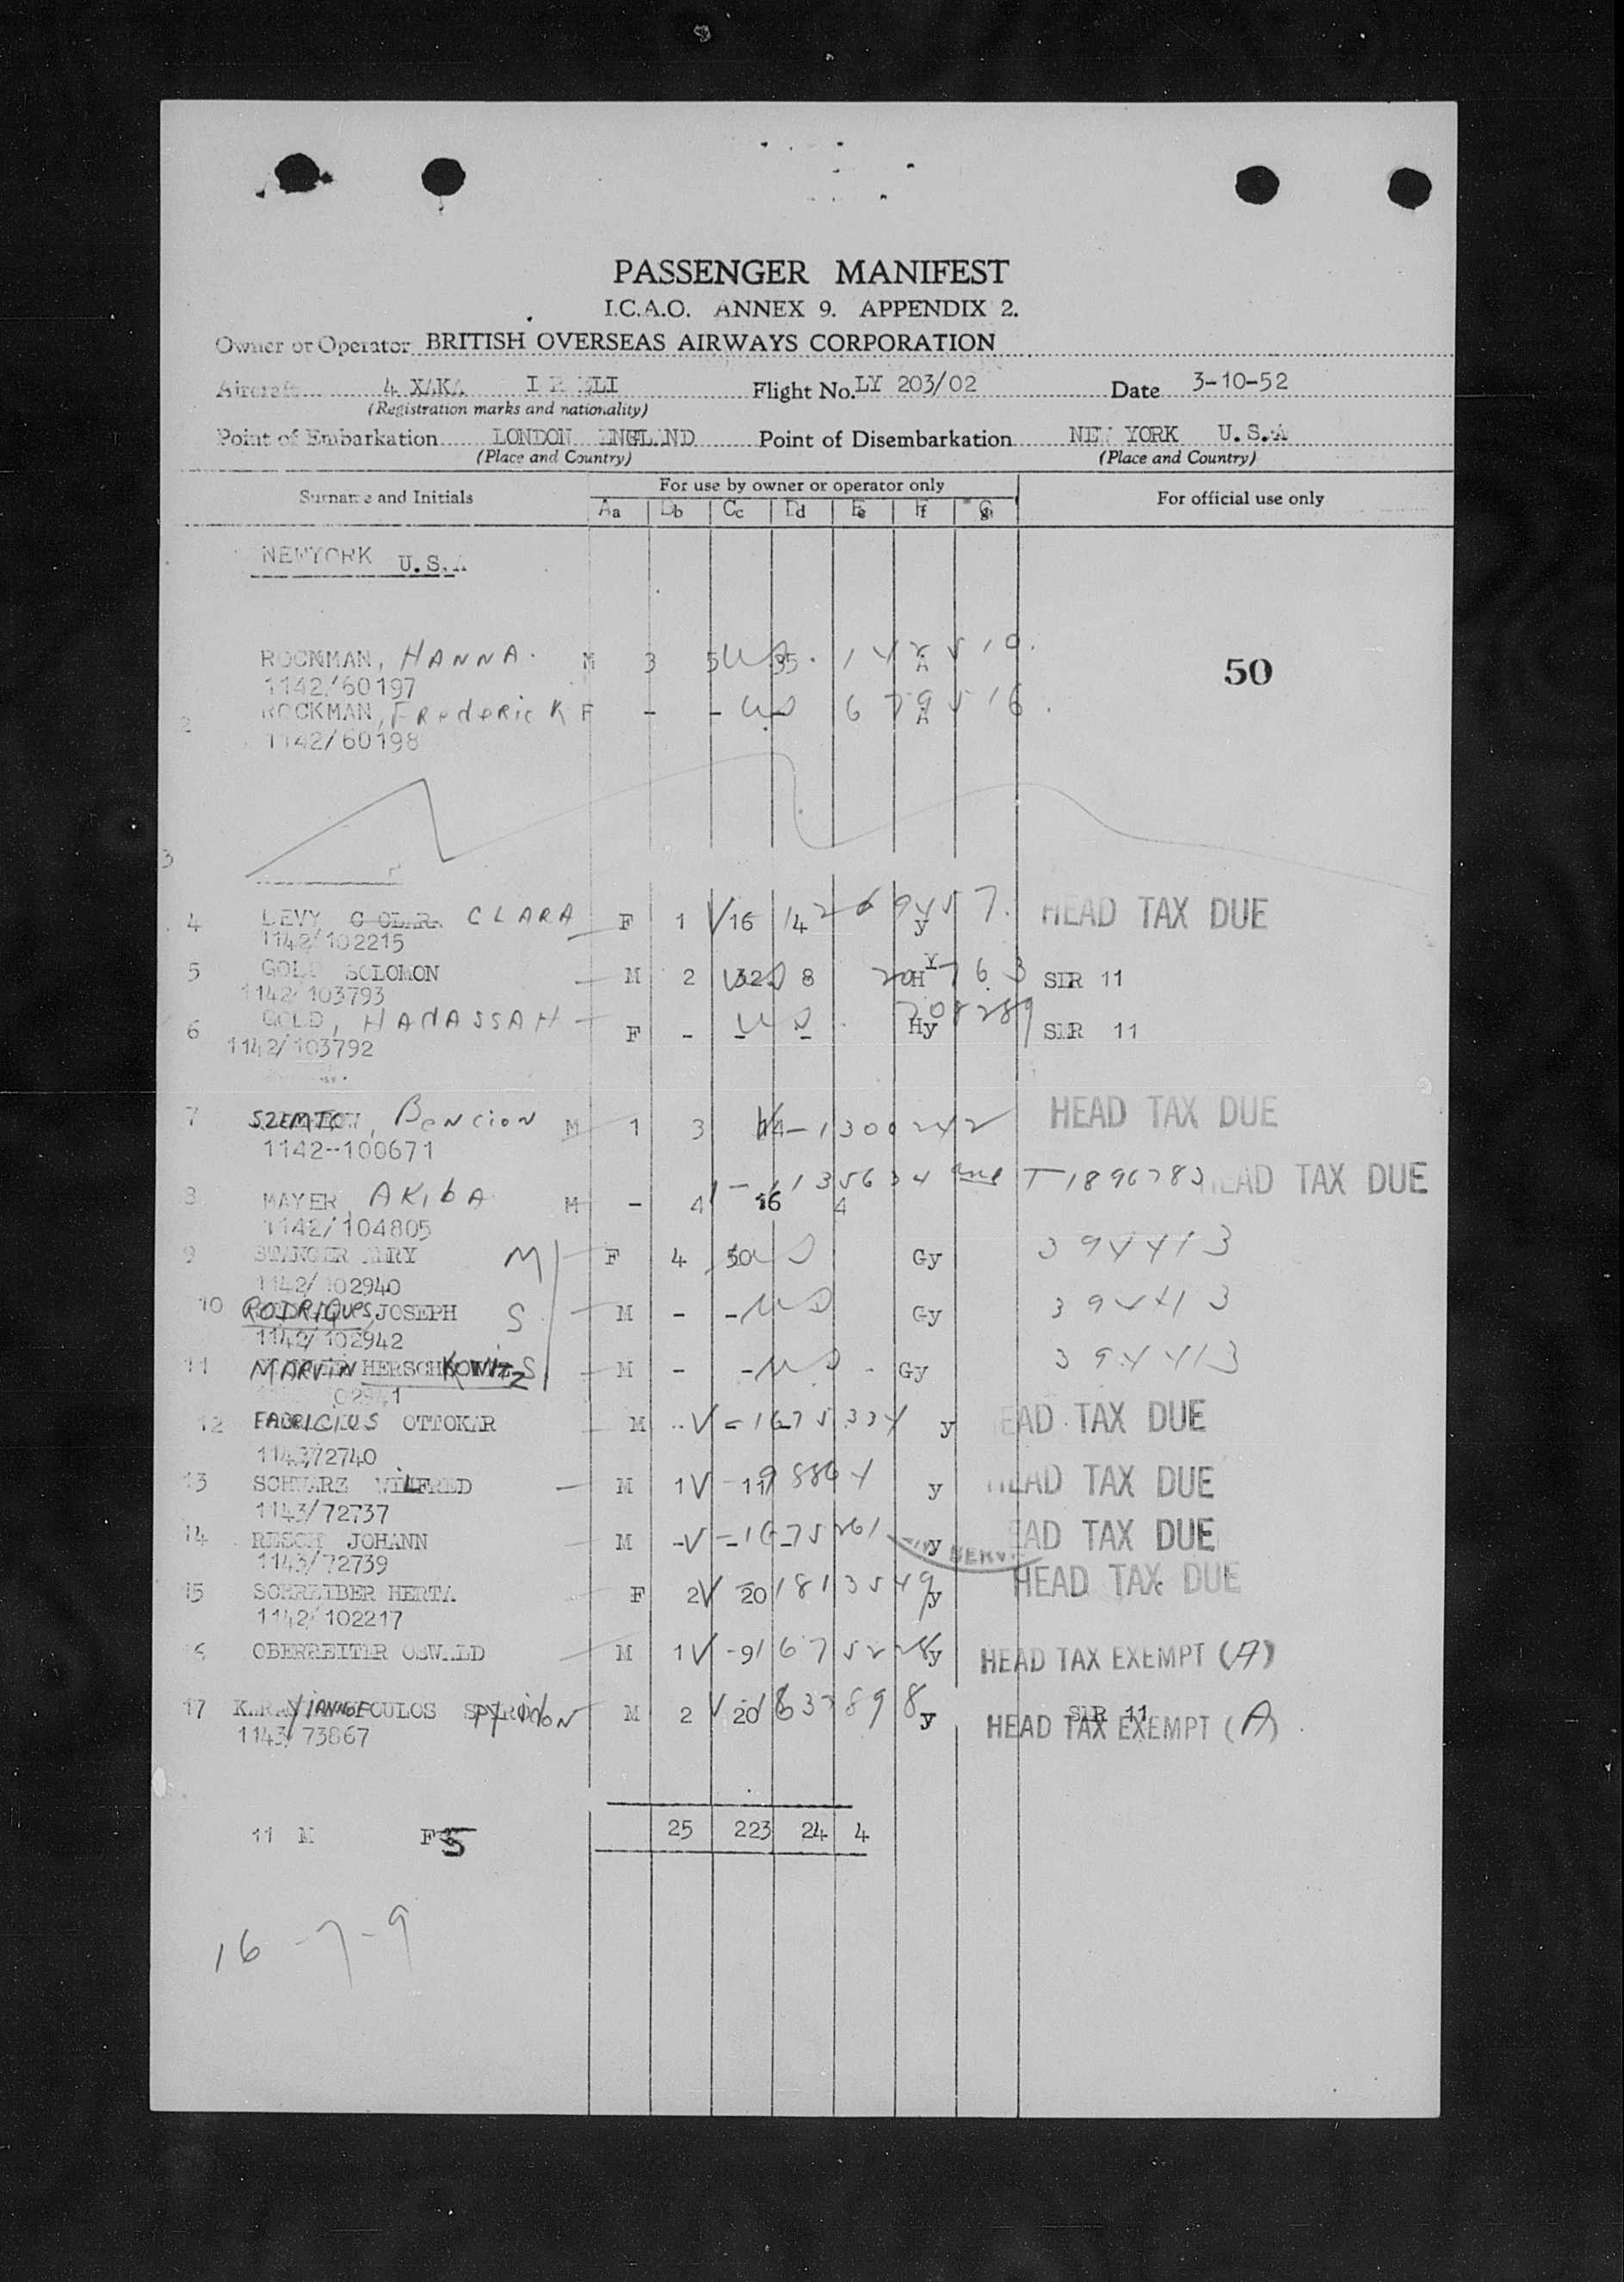 PASSENGER MANIFEST
I.C.A.O. ANNEX 9. APPENDIX 2.
Owner or Operator BRITISH OVERSEAS AIRWAYS CORPORATION
Aircraft 4 XAKA Flight No. LY 203/02 Date 3-10-52
(Registration marks and nationality)
Point of Embarkation LONDON ENGLAND Point of Disembarkation NEW YORK U.S.A
(Place and Country) (Place and Country)
Surname and Initials For use by owner or operator only For official use only
Aa Bb Cc Dd Ee Ff Gg
NEWYORK U.S.A
ROCKMAN, HANNA. M 3 5 US 35. 142510. A
50
1142/60197
2 ROCKMAN, FRedeRicK F - - US 679516. A
1142/60198
3
4 LEVY CLARA F 1 V 16 14 269457. y HEAD TAX DUE
1142/102215
5 GOLD SOLOMON M 2 32 8 H Y SLR 11
1142/103793
6 GOLD, HADASSAH F - US - Hy 208289 SLR 11
1142/103792
7 SZEMTO, BeNcioN M 1 3 14 - 1300242 HEAD TAX DUE
1142--100671
8 MAYER AKibA M - 4 16 4 - 1135634 and T-1896783 HEAD TAX DUE
1142/104805
9 STANGER MARY M F 4 50 US Gy 394413
1142/102940
10 RODRIQUES, JOSEPH S M - - US Gy 394413
1142/102942
11 MARVIN HERSCHKOWITZ S M - - US - Gy 394413
02941
12 FABRICIUS OTTOKAR M V - 1675334 y HEAD TAX DUE
1143/72740
13 SCHWARZ WILFRED M 1V - 11 98864 y HEAD TAX DUE
1143/72737
14 RESCH JOHANN M -V - 1675261 y HEAD TAX DUE
1143/72739
15 SCHREIBER HERTA F 2V 20 1813549 y HEAD TAX DUE
1142/102217
16 OBERREITER OSWALD M 1V - 9 1675228 y HEAD TAX EXEMPT (A)
17 KARAYIANNOPOULOS SPYRIDON M 2 V 20 1637898 y SLR 11
HEAD TAX EXEMPT (A)
1143/73867
11 M F 5 25 223 24 4
16 - 7 - 9